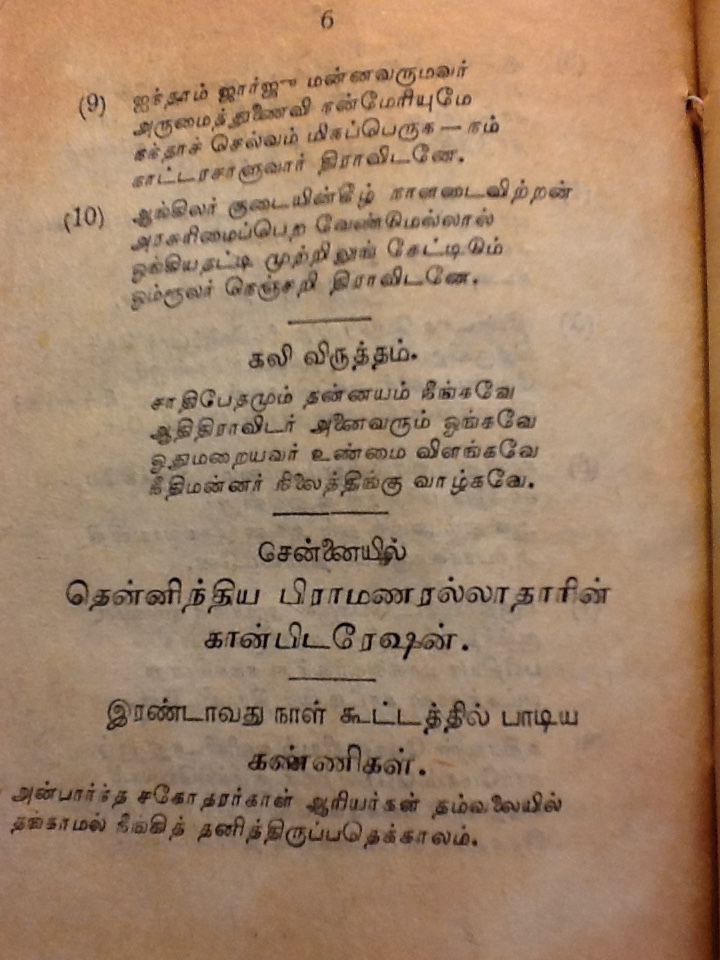 6
(9) ஐந்தாம் ஜார்ஜு மன்னவருமவர்
அருமைத்துணைவி நன்மேரியுமே
நந்தாச் செல்வம் மிகப்பெருக — நம்
நாட்டரசாளுவார் திராவிடனே.
(10) ஆங்கிலர் குடையின்கீழ் நாளடைவிற்றன்
அரசுரிமைப்பெற வேண்டுமெல்லால்
ஓங்கியதட்டி முற்றிலுங் கேட்டிடும்
ஓம்ரூலர் நெஞ்சறி திராவிடனே.
கலி விருத்தம்.
சாதிபேதமும் தன்னயம் நீங்கவே
ஆதிதிராவிடர் அனைவரும் ஓங்கவே
ஓதுமறையவர் உண்மை விளங்கவே
நீதிமன்னர் நிலைத்திங்கு வாழ்கவே.
சென்னையில்
தென்னிந்திய பிராமணரல்லாதாரின்
கான்பிடரேஷன்.
இரண்டாவது நாள் கூட்டத்தில் பாடிய
கண்ணிகள்.
அன்பார்ந்த சகோதரர்காள் ஆரியர்கள் தம்வலையில்
தங்காமல் நீங்கித் தனித்திருப்பதெக்காலம்.